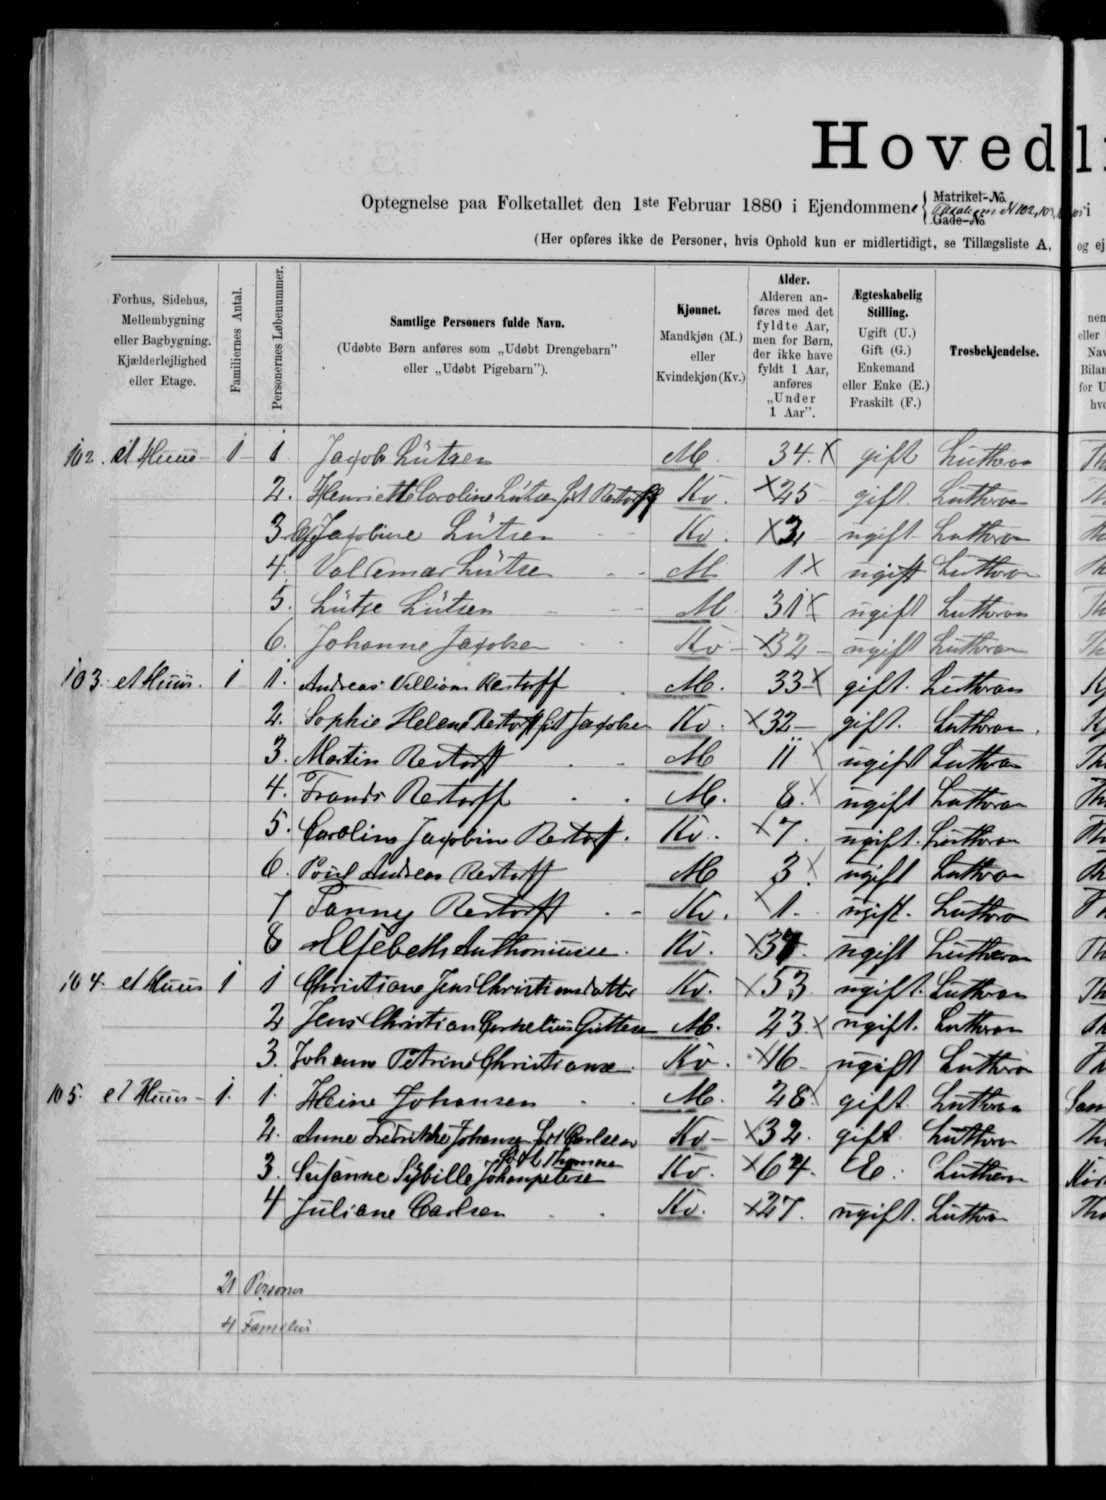 Hovedli
Optegnelse paa Folketallet den 1ste Februar 1880 i Ejendommene { Matrikel-No. Gade-No. N 102, 103, i
(Her opføres ikke de Personer, hvis Ophold kun er midlertidigt, se Tillægsliste A, og ej
Forhus, Sidehus, Mellembygning eller Bagbygning. Kjælderlejlighed eller Etage.
Familiernes Antal.
Personernes Løbenummer.
Samtlige Personers fulde Navn.
(Udøbte Børn anføres som „Udøbt Drengebarn" eller „Udøbt Pigebarn").
Kjønnet.
Mandkjøn (M.) eller Kvindekjøn (Kv.)
Alder.
Alderen anføres med det fyldte Aar, men for Børn, der ikke have fyldt 1 Aar, anføres „Under 1 Aar".
Ægteskabelig Stilling.
Ugift (U.) Gift (G.) Enkemand eller Enke (E.) Fraskilt (F.)
Trosbekjendelse.
102. et Huus 1 1 Jacob Lützen M. 34. X gift Luthran
2. Henriette Caroline Lützen født Restorff Kv. X 25 gift Luthran
3 Jacobine Lützen Kv. X 3 ugift Luthran
4. Valdemar Lützen M 1 X ugift Luthran
5. Lütje Lützen M 31 X ugift Luthran
6. Johanne Jacobsen Kv X 32 ugift Luthran
103. et Huus. 1 1. Andreas Villiam Restorff M. 33 X gift. Luthran
2. Sophie Helene Restorff født Jacobsen Kv. X 32 gift. Luthran.
3. Martin Restorff M 11 X ugift Luthran
4. Frands Restorff M. 8. X ugift Luthran
5. Caroline Jacobine Restorff. Kv. X 7. ugift. Luthran
6. Poul Andreas Restorff M 3 X ugift Luthran
7 Fanny Restorff Kv. X 1. ugift. Luthran
8 Elsebeth Anthoniusen. Kv. X 37. ugift Luthran
104. et Huus 1 1 Christiane Jens Christiansdatter Kv. X 53 ugift. Luthran
2 Jens Christian Guttesen M. 23 X ugift. Luthran
3. Johanne Petrine Christianse. Kv. X 16 ugift Luthran
105. et Huus 1. 1. Heine Johansen M. 28. X gift Luthran
2. Anne Fredrikke Johansen født Carlsen Kv X 32. gift Luthran
født Thomsen
3. Susanne Sybille Johanpetersen Kv. X 64. E. Luthran
4 Juliane Carlsen Kv. X 27. ugift. Luthran
21 Personer
4 Familier.